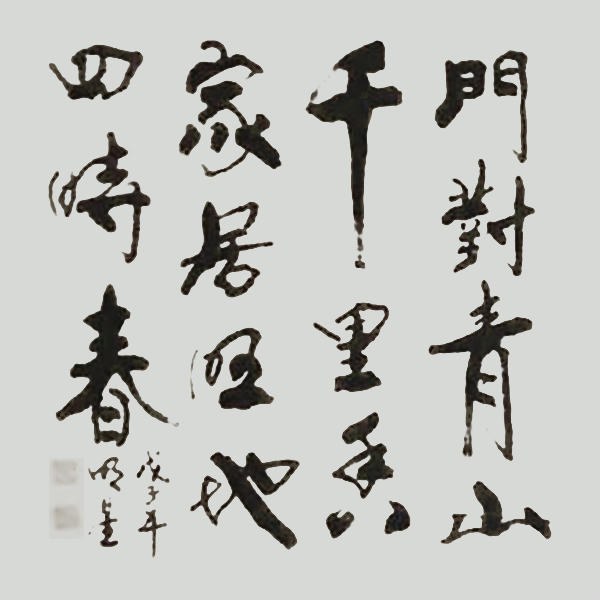 門對青山
千里秀
家居旺地
四時春
戊子年
明